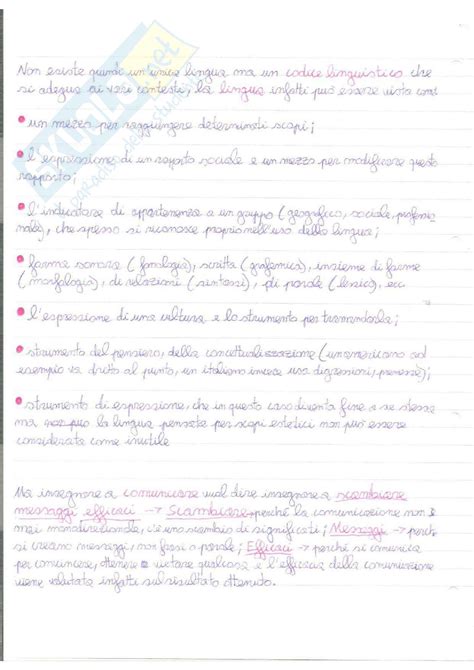 SKUOLA.net
paradiso dello studente
Non esiste quindi un'unica lingua ma un codice linguistico che
si adegua ai vari contesti, la lingua infatti può essere vista come
• un mezzo per raggiungere determinati scopi;
• l'espressione di un rapporto sociale e un mezzo per modificare questo
rapporto;
• l'indicatore di appartenenza a un gruppo (geografico, sociale, professio-
nale), che spesso si riconosce proprio nell'uso della lingua;
• forma sonora (fonologia), scritta (grafemica), insieme di forme
(morfologia), di relazioni (sintassi), di parole (lessico), ecc
• l'espressione di una cultura e lo strumento per tramandarla;
• strumento del pensiero, della concettualizzazione (un americano ad
esempio va dritto al punto, un italiano invece usa digressioni, premesse);
• strumento di espressione, che in questo caso diventa fine a se stessa
ma la lingua pensata per scopi estetici non può essere
considerata come inutile
Ma insegnare a comunicare vuol dire insegnare a scambiare
messaggi efficaci → Scambiare → perché la comunicazione non è
mai monodirezionale, c'è uno scambio di significati; Messaggi → perché
si creano messaggi, non frasi o parole; Efficaci → perché si comunica
per convincere, ottenere o vietare qualcosa e l'efficacia della comunicazione
viene valutata infatti sul risultato ottenuto.